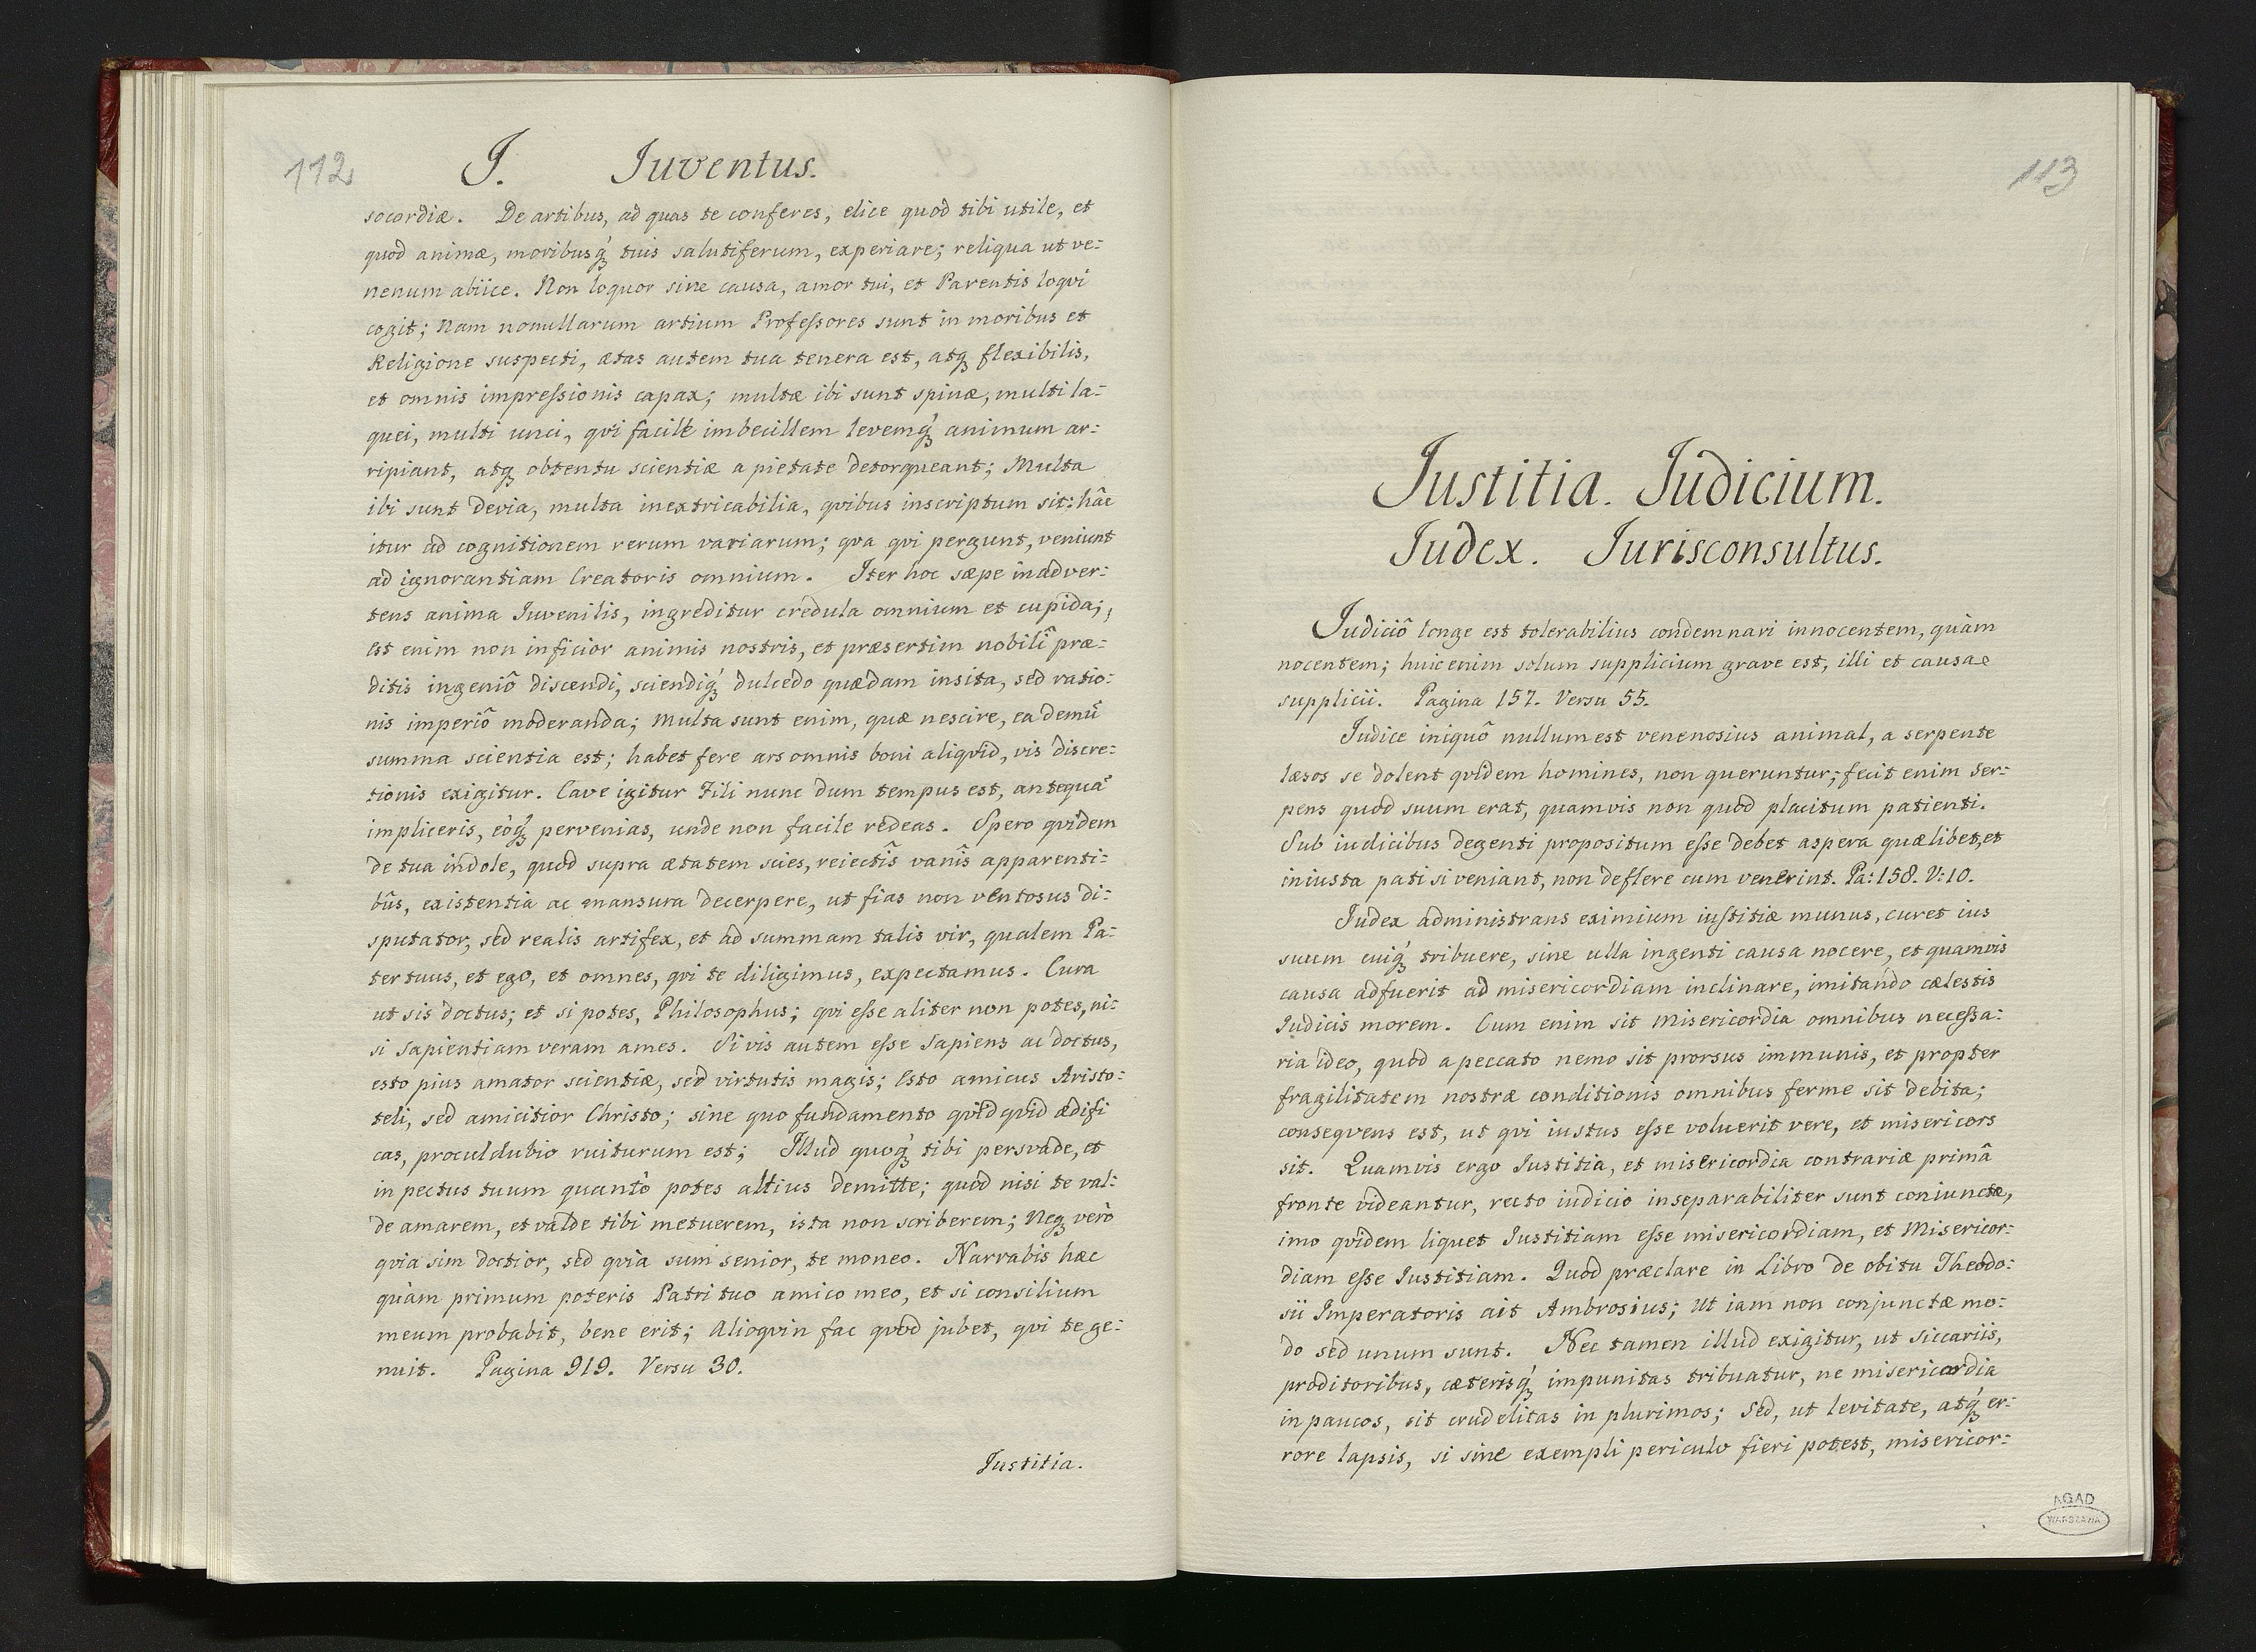 112
J. Juventus.
socordiæ. De artibus, ad quas te conferes, elice quod tibi utile, et
quod animæ, moribusq́ꝫ tuis salutiferum, experiare; reliqua ut ve:
nenum abiice. Non loquor sine causa, amor tui, et Parentis loqvi
cogit; Nam nonullarum artium Profeſsores sunt in moribus et
Religione suspecti, ætas autem tua tenera est, atqꝫ flexibilis,
et omnis impreſsionis capax; multæ ibi sunt spinæ, multi la:
quei, multi unci, qvi facile imbecillem levemq́ꝫ animum ar:
ripiant, atqꝫ obtentu scientiæ a pietate detorqueant; Multa
ibi sunt devia, multa inextricabilia, qvibus inscriptum sit: hâc
itur ad cognitionem rerum variarum; qva qvi pergunt, veniunt
ad ignorantiam Creatoris omnium. Iter hoc sæpe inadver:
tens anima Juvenilis, ingreditur credula omnium et cupida;
Est enim non inficior animis nostris, et præsertim nobili præ:
ditis ingeniô discendi, sciendiq́ꝫ dulcedo quædam insita, sed ratio:
nis imperiô moderanda; Multa sunt enim, quæ nescire, ea demũ
summa scientia est; habet fere ars omnis boni aliqvid, vis discre:
tionis exigitur. Cave igitur Fili nunc dum tempus est, antequã
impliceris, eòq́ꝫ pervenias, unde non facile redeas. Spero qvidem
de tua indole, quod supra ætatem scies, reiectîs vanîs apparenti:
bûs, existentia ac mansura decerpere, ut fias non ventosus di:
sputator, sed realis artifex, et ad summam talis vir, qualem Pa:
ter tuus, et ego, et omnes, qvi te diligimus, expectamus. Cura
ut sis doctus; et si potes, Philosophus; qvi eſse aliter non potes, ni:
si sapientiam veram ames. Si vis autem eſse sapiens ac doctus,
esto pius amator scientiæ, sed virtutis magis; Esto amicus Aristo:
teli, sed amicitior Christo; sine quo fundamento qvidqvid ædifi
cas, proculdubio ruiturum est; Illud quoq́ꝫ tibi persvade, et
in pectus tuum quantò potes altius demitte; quod nisi te val:
de amarem, et valde tibi metuerem, ista non scriberem; Neqꝫ verò
qvia sim doctior, sed qvia sum senior, te moneo. Narrabis hæc
quàm primum poteris Patri tuo amico meo, et si consilium
meum probabit, bene erit; Alioqvin fac qvod jubet, qvi te ge:
nuit. Pagina 919. Versu 30.
Justitia.
113
Justitia. Judicium.
Judex. Jurisconsultus.
Judiciô longe est tolerabilius condemnari innocentem, quàm
nocentem; huic enim solum supplicium grave est, illi et causae
supplicii. Pagina 157. Versu 55.
Judice iniquô nullum est venenosius animal, a serpente
læsos se dolent qvidem homines, non queruntur; fecit enim ser:
pens quod suum erat, quamvis non quod placitum patienti.
Sub iudicibus degenti propositum eſse debet aspera quælibet, et
iniusta pati si veniant, non deflere cum venerint. Pa: 158. V: 10.
Judex administrans eximium iuſtitiæ munus, curet ius
suum cuiq́ꝫ tribuere, sine ulla ingenti causa nocere, et quamvis
causa adfuerit ad misericordiam inclinare, imitando cælestis
Judicis morem. Cum enim sit Misericordia omnibus neceſsa:
ria ideo, quod a peccato nemo sit prorsus immunis, et propter
fragilitatem nostræ conditionis omnibus ferme sit debita;
conseqvens est, ut qvi iustus eſse voluerit vere, et misericors
sit. Quamvis ergo Justitia, et misericordia contrariæ primâ
fronte videantur, recto iudicio inseparabiliter sunt coniunctæ,
imo qvidem liquet Justitiam eſse misericordiam, et Misericor:
diam eſse Justitiam. Quod præclare in Libro de obitu Theodo:
sii Imperatoris ait Ambrosius; Ut iam non conjunctæ mo:
do sed unum sunt. Nec tamen illud exigitur, ut siccariis,
proditoribus, cæterisq́ꝫ impunitas tribuatur, ne misericordia
in paucos, sit crudelitas in plurimos; Sed, ut levitate, atq́ꝫ er:
rore lapsis, si sine exempli periculo fieri potest, misericor:
AGAD
WARSZAWA